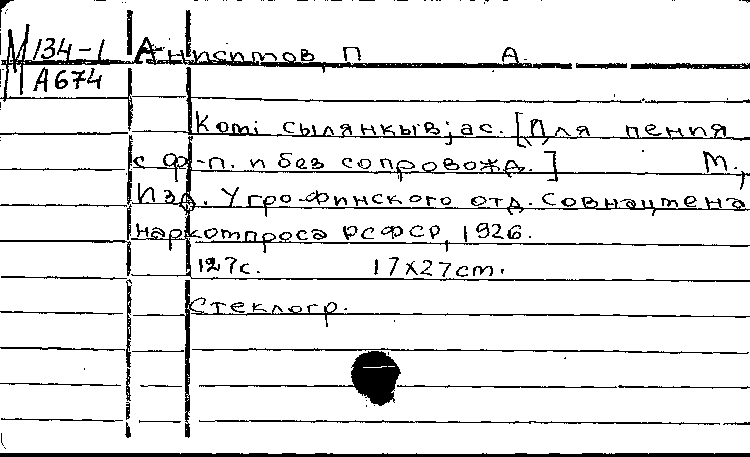 М 134-1 Анисимов, П А.
А674
Komi сылянкывјас. [Для пения
с ф-п. и без сопровожд.] М.,
Изд. Угро-Финского отд. Совнацмена
наркомпроса РСФСР, 1926.
127с. 17x27cm.
Стеклогр.